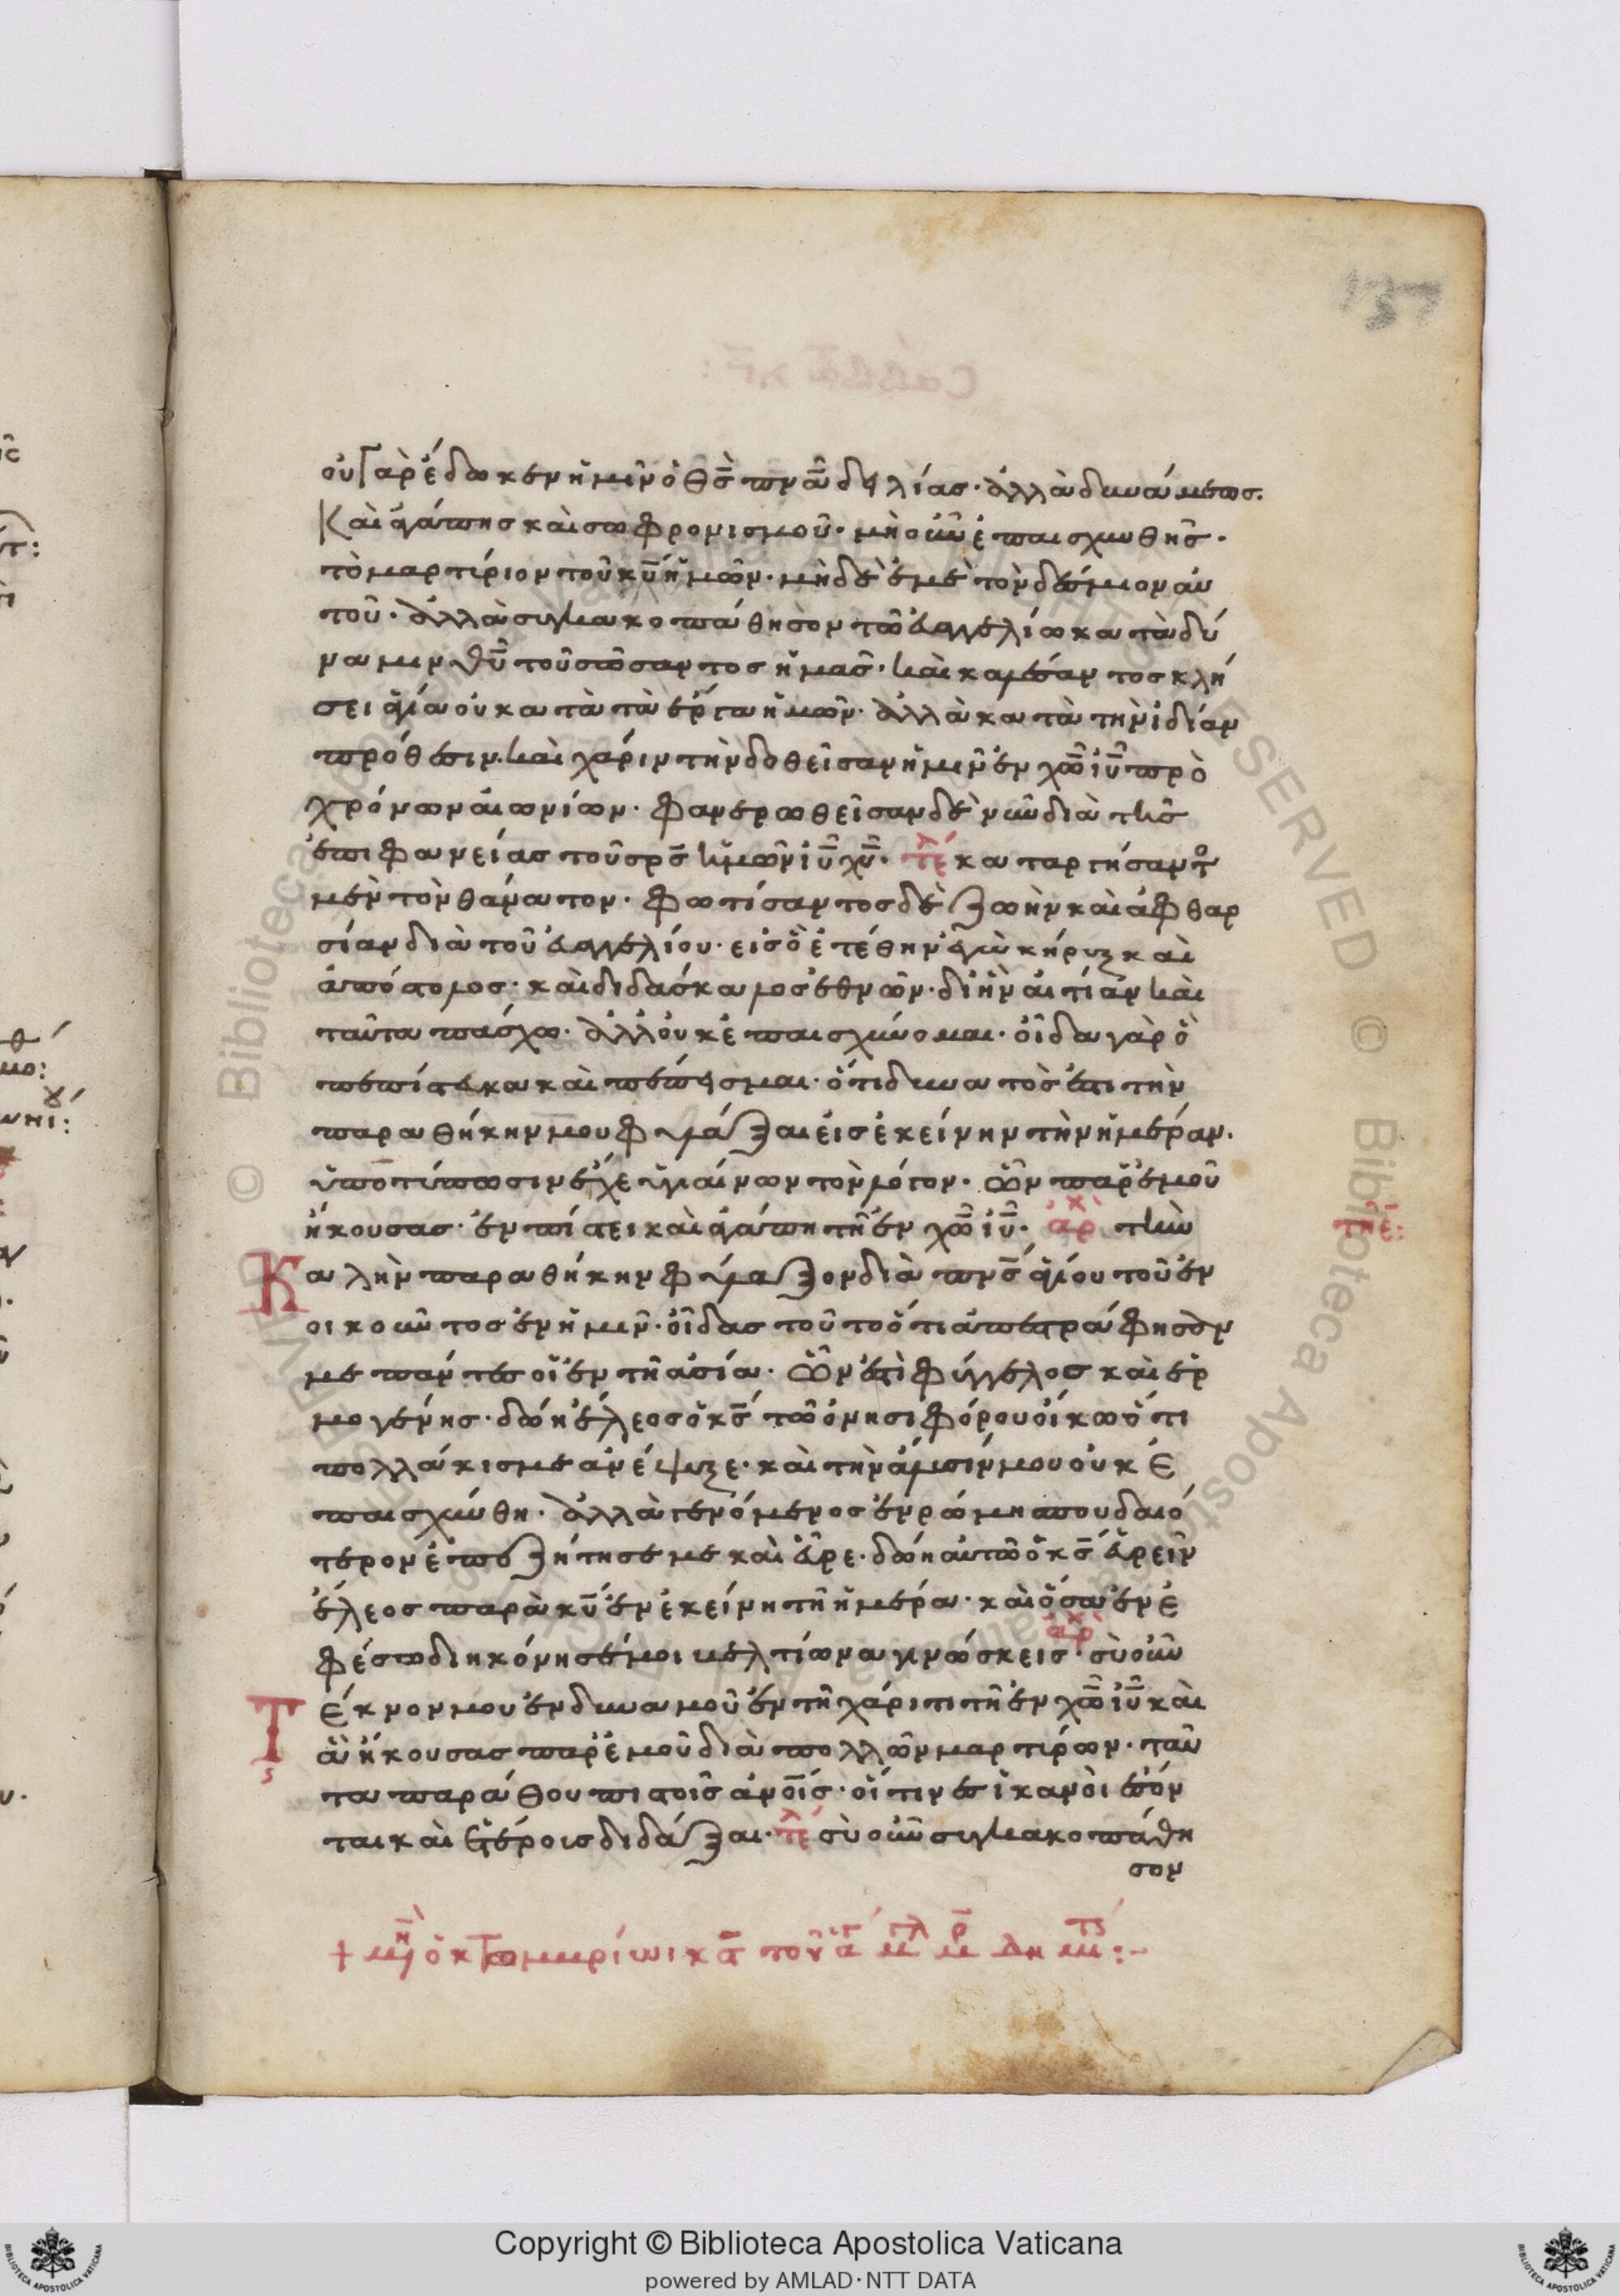 137
οὐ γὰρ ἔδωκεν ἡμῖν ὁ θ̅ς̅ π̅ν̅α̅ δειλίας· ἀλλὰ δυνάμεως.
Καὶ ἀγάπης καὶ σωφρονισμοῦ· μὴ οὖν ἐπαισχυνθῆς·
τὸ μαρτίριον τοῦ κ̅υ̅ ἡμῶν· μὴδὲ ἐμὲ τὸν δέσμιον αὐ
τοῦ· ἀλλὰ συγκακοπάθησον τῶ εὐαγγελίω κατὰ δύ
ναμιν θ̅υ̅ τοῦ σώσαντος ἡμᾶς· καὶ καλέσαντος κλή
σει ἁγία οὐ κατὰ τὰ ἔργα ἡμῶν· ἀλλὰ κατὰ τὴν ἰδίαν
πρόθεσιν. καὶ χάριν τὴν δοθεῖσαν ἡμῖν ἐν χ̅ω̅ ἰ̅υ̅ πρὸ
χρόνων αἰωνίων· φανερωθεῖσαν δὲ νῦν διὰ τῆς
ἐπιφανείας τοῦ σ̅ρ̅ς̅ ἡμῶν ἰ̅υ̅ χ̅υ̅· τέλ καταργήσαντο
μὲν τὸν θάνατον· φωτίσαντος δὲ ζωὴν καὶ ἀφθαρ
σίαν διὰ τοῦ εὐαγγελίου· εἰς ὃ ἐτέθην ἐγὼ κήρυξ καὶ
ἀπόστολος· καὶ διδάσκαλος ἐθνῶν· δι' ἣν αἰτίαν καὶ
ταῦτα πάσχω· ἀλλ' οὐκ ἐπαισχύνομαι· οἶδα γὰρ ὃ
πεπίστευκα καὶ πέπεισμαι· ὅτι δυνατὸς ἐστι τὴν
παραθήκην μου φυλάξαι εἰς ἐκείνην τὴν ἡμέραν.
ὑποτύπωσιν ἔχε ὑγιαίνων τὸν λόγον· ὧν παρ' ἐμοῦ
ἤκουσας· ἐν πίστει καὶ ἀγάπη τῆ ἐν χ̅ω̅ ἰ̅υ̅· ἀρχ τὴν
Καλὴν παραθήκην φύλαξον διὰ π̅ν̅ς̅ ἁγίου τοῦ ἐν
οικοῦντος ἐν ἡμῖν· οἶδας τοῦτο ὅτι ἀπεστράφησὸν
με πάντες οἱ ἐν τῆ ἀσία· ὧν ἐστὶ φύγγελος καὶ ἑρ
μογένης· δώη ἔλεος ὁ κ̅ς̅ τῶ ὀνησιφόρου οἴκω ὅτι
πολλάκις με ἀνέψυξε· καὶ τὴν ἅλυσίν μου οὐκ ἐ
παισχύνθη· ἀλλὰ γενόμενος ἐν ῥώμη σπουδαιό
τερον ἐπεζήτησέ με καὶ εὗρε· δώη αὐτῶ ὁ κ̅ς̅ εὑρεῖν
ἔλεος παρὰ κ̅υ̅ ἐν ἐκείνη τῆ ἡμέρα· καὶ ὅσα ἐν ἐ
φέσω διηκόνησέ μοι βελτίωνα γινώσκεις· ἀρχ σὺ οὖν
Τέκνον μου ἐνδυναμοῦ ἐν τῆ χάριτι τῆ ἐν χ̅ω̅ ἰ̅υ̅ καὶ
ἃ ἤκουσας παρ' ἐμοῦ διὰ πολλῶν μαρτίρων· ταῦ
τα παράθου πιστοῖς ἀν̅ο̅ίς· οἵτινες ἱκανοὶ ἔσον
ται καὶ ἑτέροις διδάξαι· τέλ σὺ οὖν συγκακοπάθη
σον